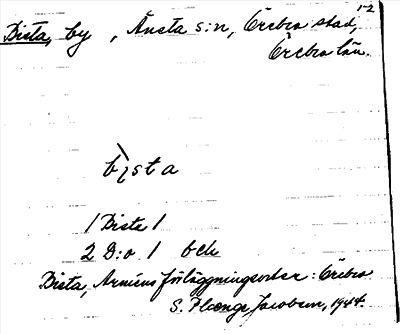 1-2
Bista, by , Ånsta s:n, Örebro stad,
Örebro län.
bista
1 Bista 1
2 D:o 1 bek
Bista, Arméns förläggningsorter: Örebro
S. Jacobsen, 1944.